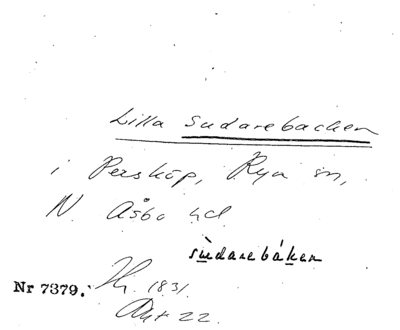 Lilla Sudarebacken
i Perstorp, Rya sn,
N. Åsbo hd.
sùdarebáken
Nr 7379. Lh. 1831.
Akt 22.